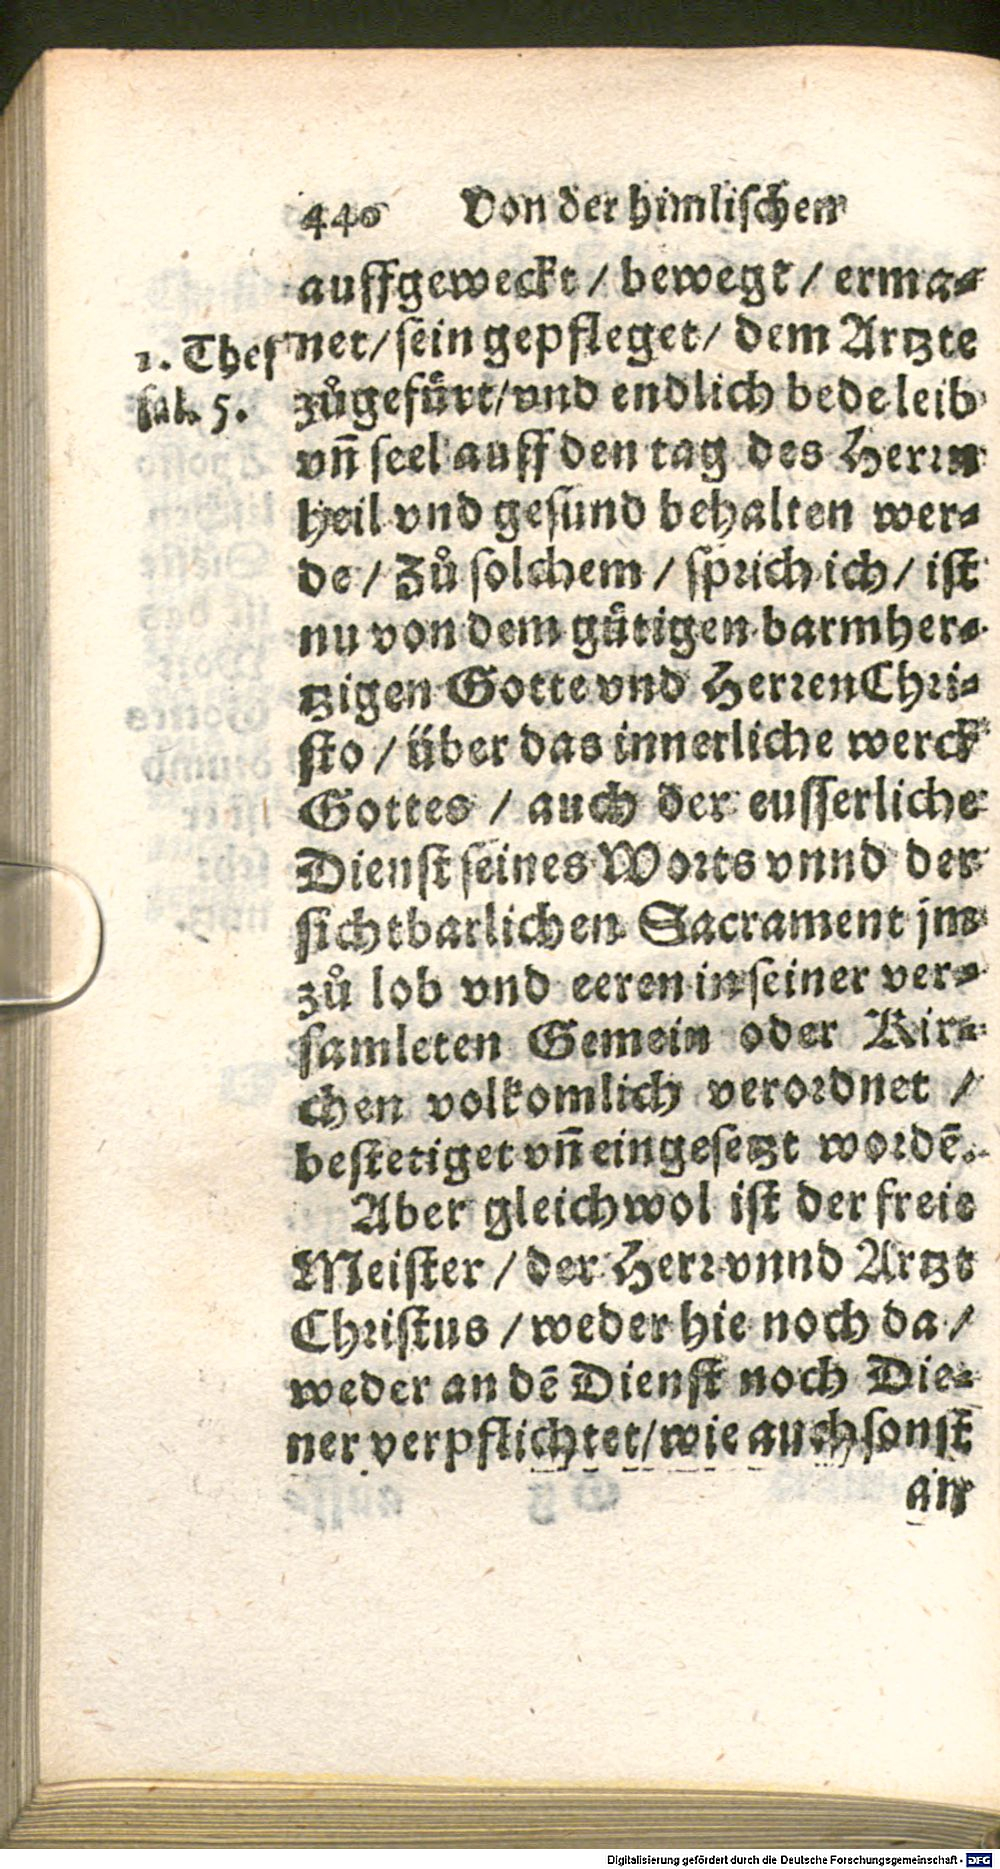 440 Von der himlischen
auffgeweckt / bewegt / erma⸗
1. Thes
net/ sein gepfleget/ dem Artzte
sal. 5.
zůgefuͤrt/ vnd endlich bede leib
vn̄ seel auff den tag des Herrn
heil vnd gesund behalten wer⸗
de / Zů solchem / sprich ich / ist
nu von dem guͤtigen barmher⸗
tzigen Gotte vnd Herren Chri⸗
sto / uͤber das innerliche werck
Gottes / auch der eusserliche
Dienst seines Worts vnnd der
sichtbarlichen Sacrament jm
zů lob vnd eeren in seiner ver⸗
samleten Gemein oder Kir⸗
chen volkomlich verordnet /
bestetiget vn̄ eingesetzt wordē.
Aber gleichwol ist der freie
Meister / der Herr vnnd Artzt
Christus / weder hie noch da /
weder an dē Dienst noch Die⸗
ner verpflichtet/ wie auch sonst
an
Digitalisierung gefördert durch die Deutsche Forschungsgemeinschaft - DFG